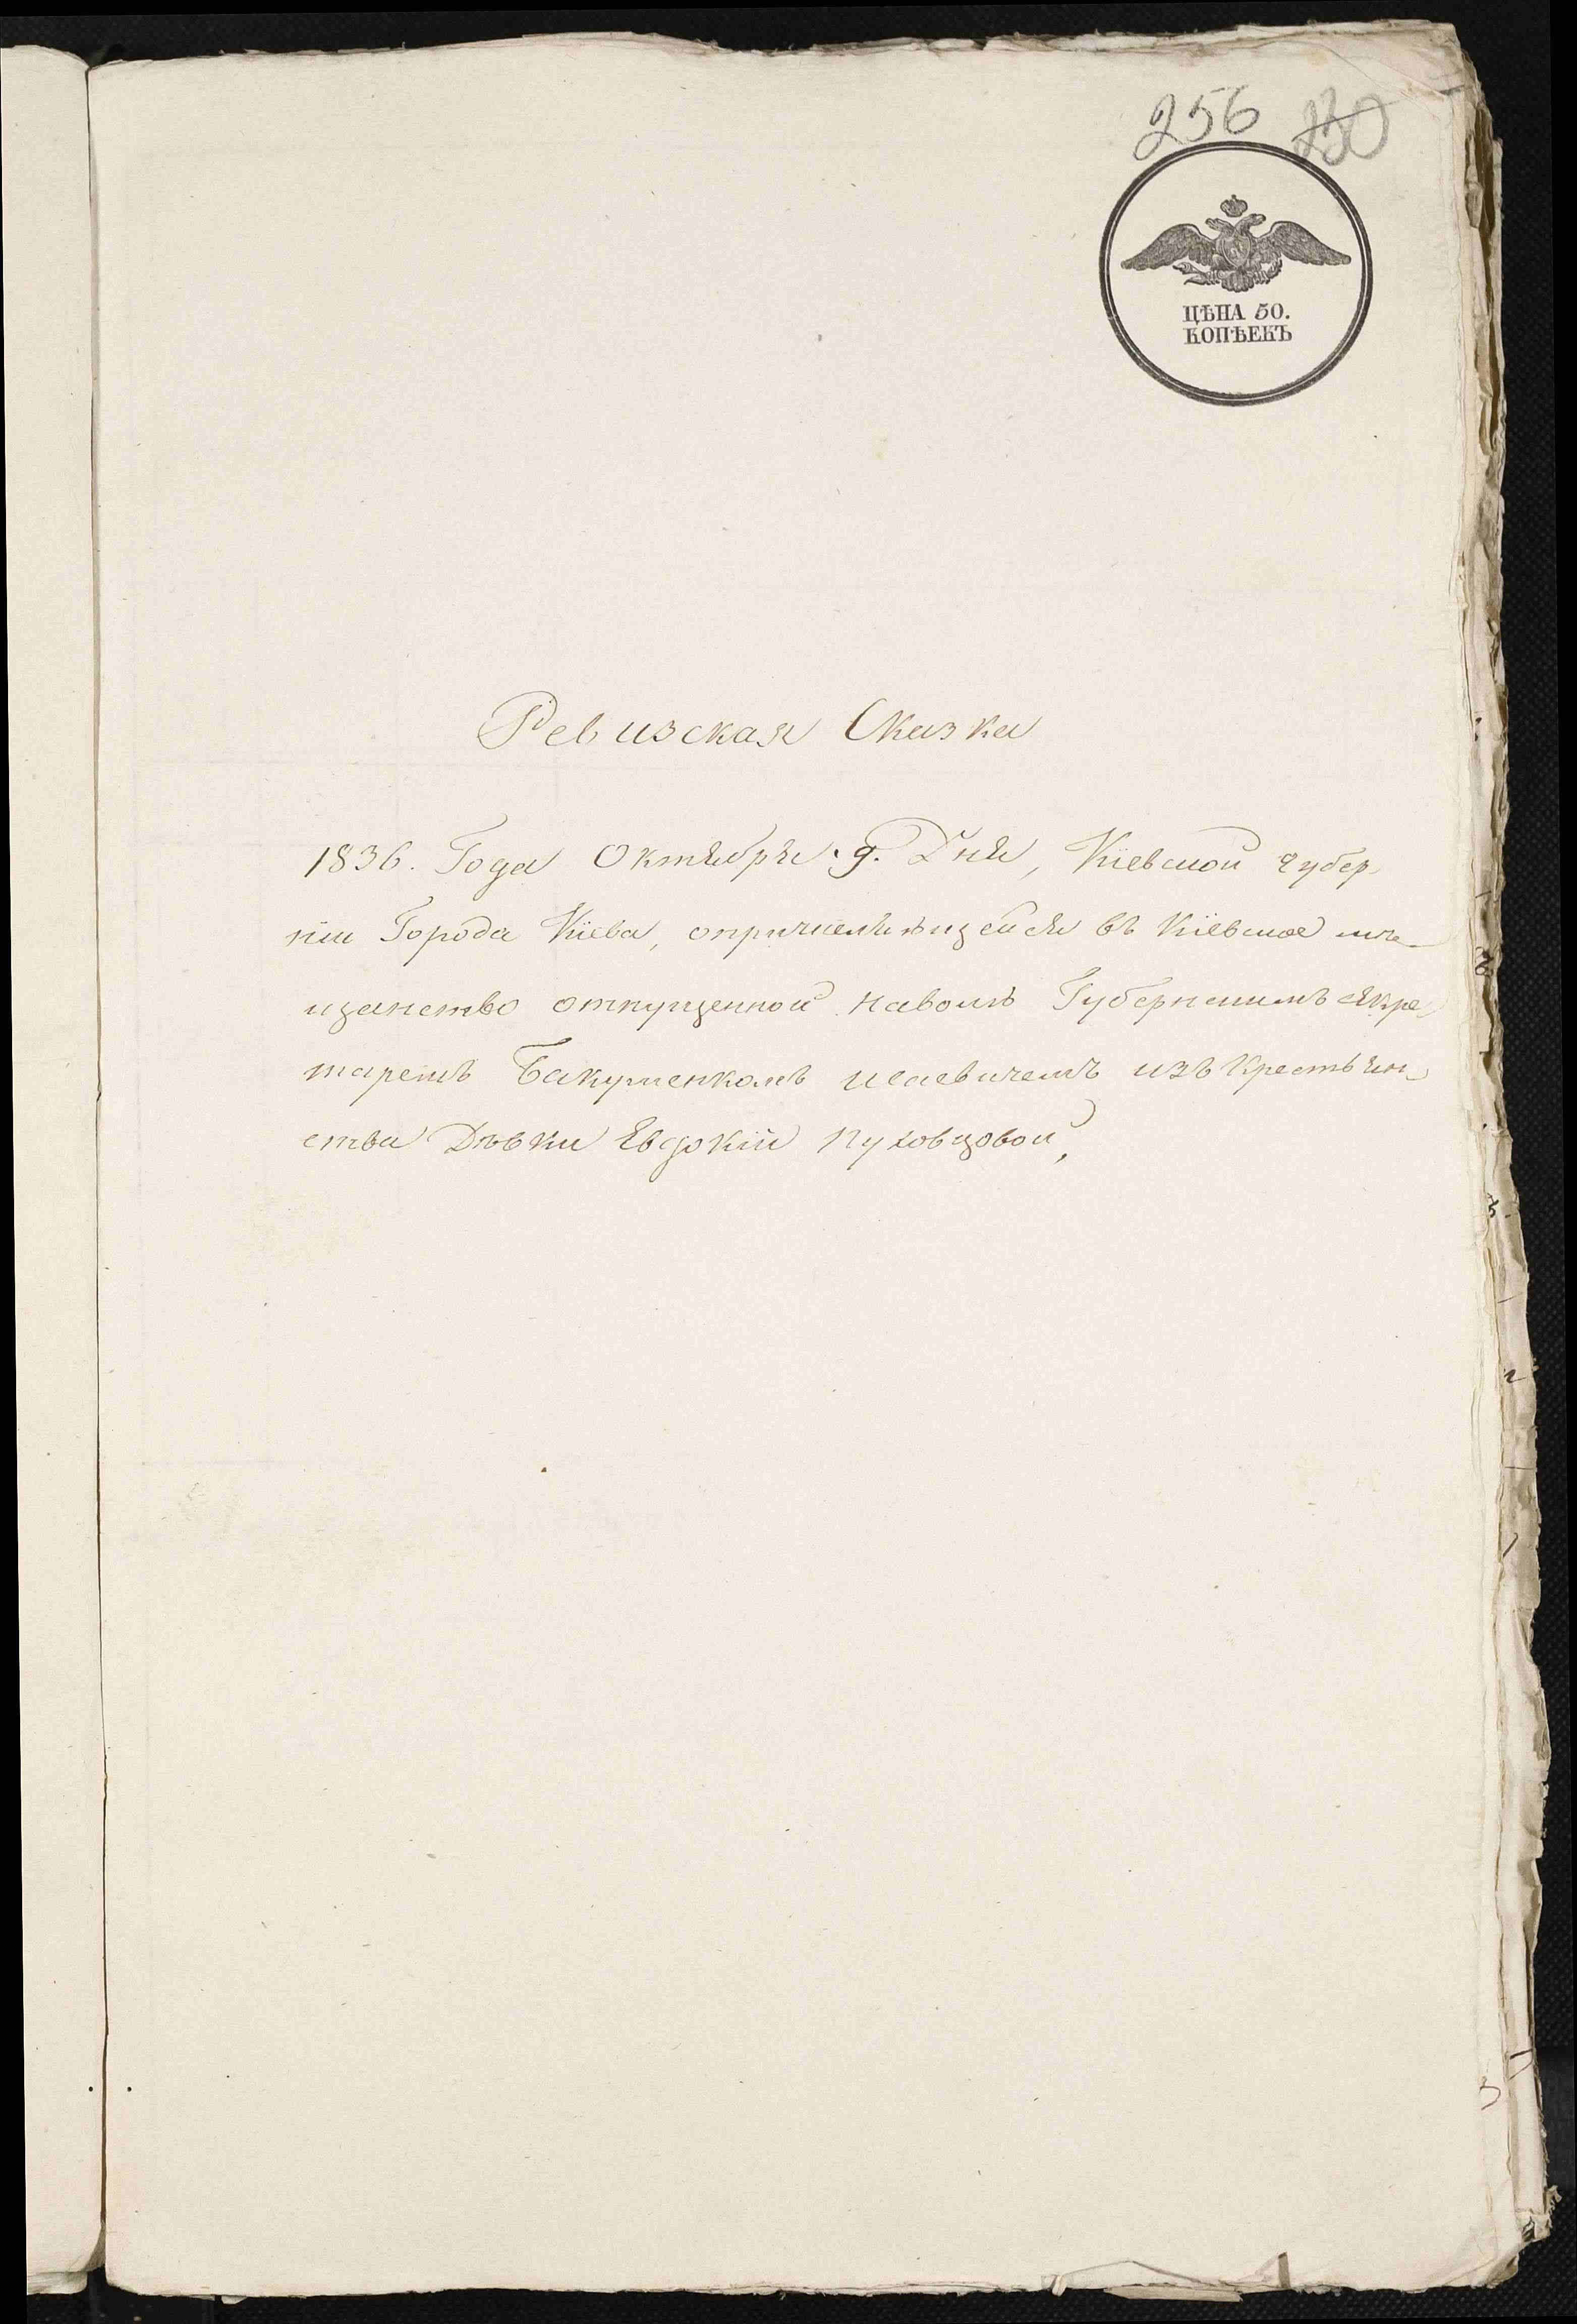 256 230
ЦѢНА 50.
КОПѢЕКЪ
Ревизская Сказка
1836. Года Октября 9. Дня, Кіевской губер-
ніи Города Кіева, опричисляющейся въ Кіевское мѣ-
щанство отпущенной наволю Губернскимъ секре-
таремъ Бакуменкомъ Исаевичемъ изъ крестьян-
ства Дѣвки Евдокіи Пуховцовой,